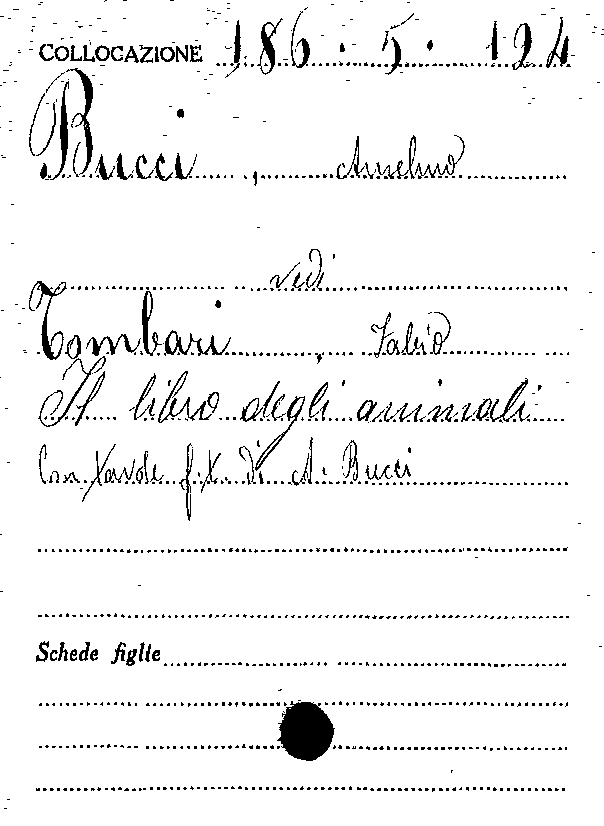 COLLOCAZIONE 186 · 5 · 124
Bucci, Anselmo
vedi
Tombari, Fabio
Il libro degli animali
Con tavole f.t. di A. Bucci
Schede figlie